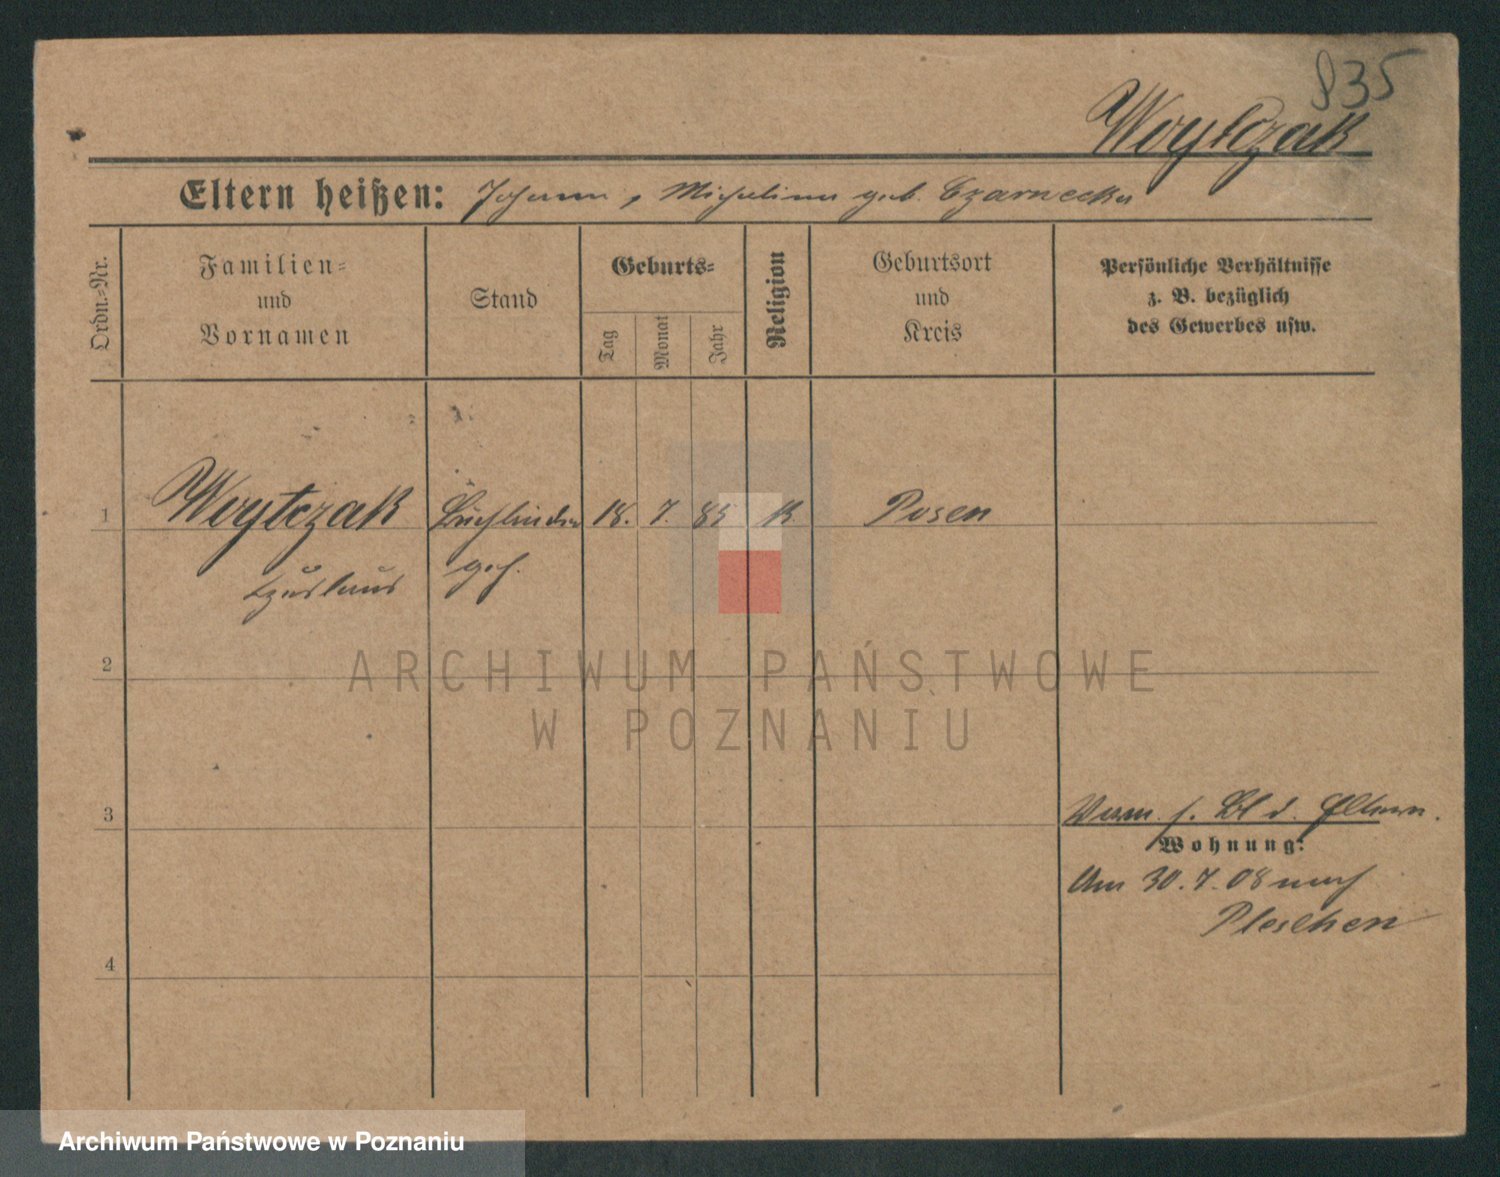 835
Woytczak
Eltern heißen: Johann, Michalina geb. Czarnecka
Ordn.-Nr.
Familien-
und
Vornamen
Stand
Geburts-
Tag
Monat
Jahr
Religion
Geburtsort
und
Kreis
Persönliche Verhältnisse
z. B. bezüglich
des Gewerbes usw.
1 Woytczak Buchbinder 18. 7. 85 K Posen
geh.
2
3
Verm. s. Bl d. Eltern.
Wohnung:
Am 30.7.08 nach
Pleschen
4
ARCHIWUM PAŃSTWOWE
W POZNANIU
Archiwum Państwowe w Poznaniu